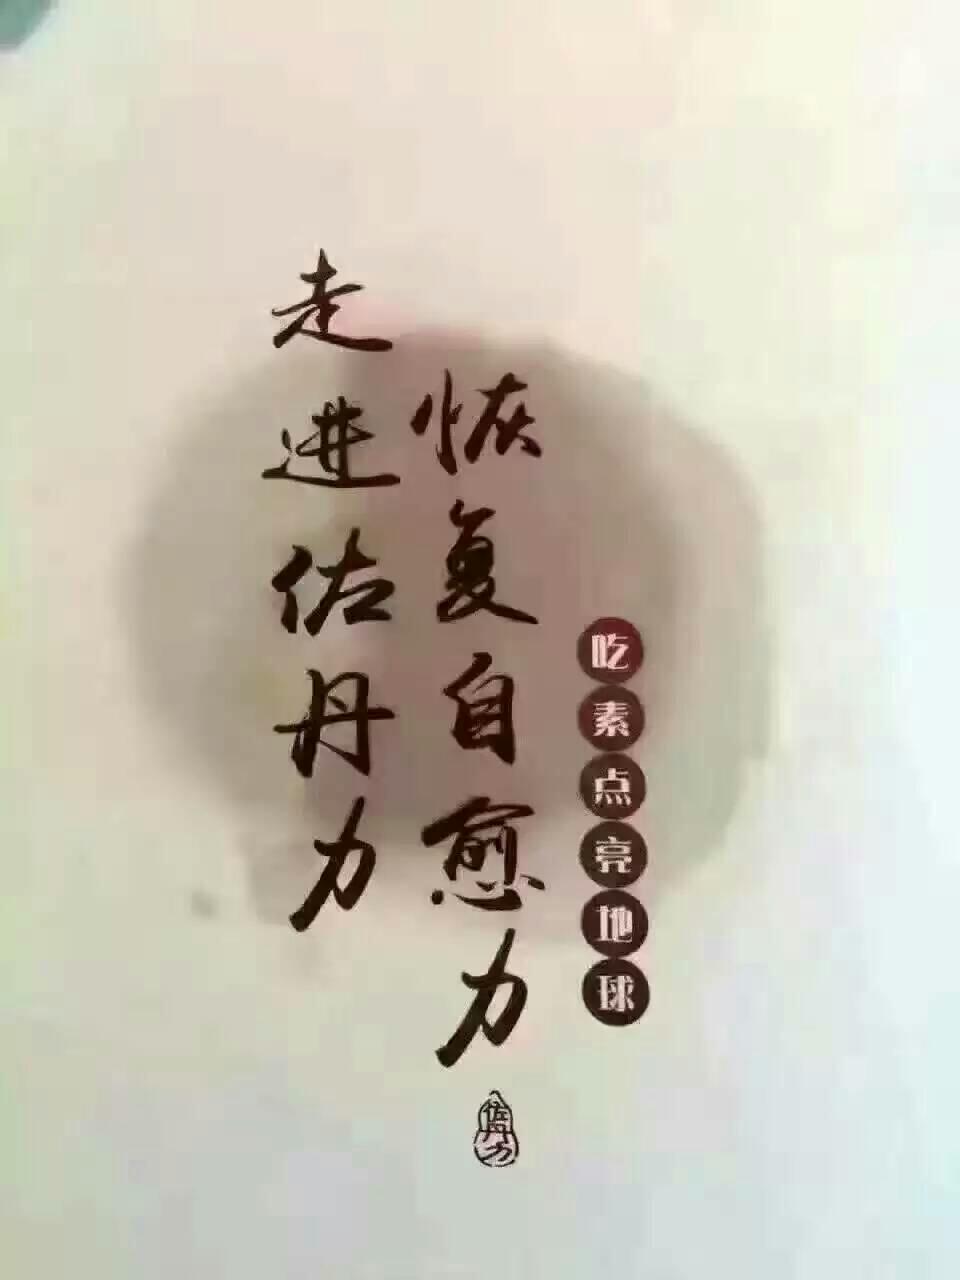 走进佐丹力
恢复自愈力
吃素点亮地球
佐丹力